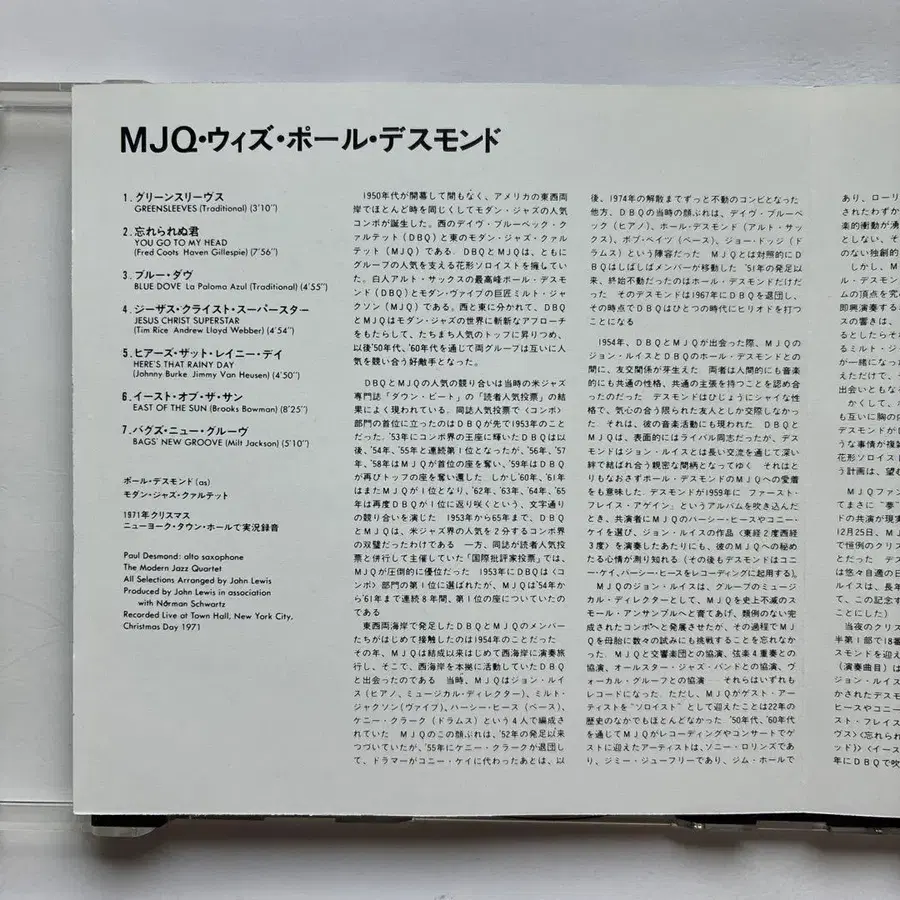 MJQ・ウィズ・ポール・デスモンド
1. グリーンスリーヴス
GREENSLEEVES (Traditional) (3'10")
2. 忘れられぬ君
YOU GO TO MY HEAD
(Fred Coots Haven Gillespie) (7'56")
3. ブルー・ダヴ
BLUE DOVE La Paloma Azul (Traditional) (4'55")
4. ジーザス・クライスト・スーパースター
JESUS CHRIST SUPERSTAR
(Tim Rice Andrew Lloyd Webber) (4'54")
5. ヒアーズ・ザット・レイニー・デイ
HERE'S THAT RAINY DAY
(Johnny Burke Jimmy Van Heusen) (4'50")
6. イースト・オブ・ザ・サン
EAST OF THE SUN (Brooks Bowman) (8'25")
7. バグズ・ニュー・グルーヴ
BAGS' NEW GROOVE (Milt Jackson) (5'10")
ポール・デスモンド (as)
モダン・ジャズ・クァルテット
1971年クリスマス
ニューヨーク・タウン・ホールで実況録音
Paul Desmond: alto saxophone
The Modern Jazz Quartet
All Selections Arranged by John Lewis
Produced by John Lewis in association
with Norman Schwartz
Recorded Live at Town Hall, New York City,
Christmas Day 1971
1950年代が開幕して間もなく、アメリカの東西両
岸でほとんど時を同じくしてモダン・ジャズの人気
コンボが誕生した。西のデイヴ・ブルーベック・ク
ァルテット(DBQ)と東のモダン・ジャズ・クァル
テット(MJQ)である。DBQとMJQは、ともに
グループの人気を支える花形ソロイストを擁してい
た。白人アルト・サックスの最高峰ポール・デスモ
ンド(DBQ)とモダン・ヴァイブの巨匠ミルト・ジャ
クソン(MJQ)である。西と東に分かれて、DBQ
とMJQはモダン・ジャズの世界に斬新なアプローチ
をもたらして、たちまち人気のトップに昇りつめ、
以後'50年代、'60年代を通じて両グループは互いに人
気を競い合う好敵手となった。
DBQとMJQの人気の競り合いは当時の米ジャズ
専門誌「ダウン・ビート」の「読者人気投票」の結
果によく現われている。同誌人気投票で〈コンボ〉
部門の首位に立ったのはDBQが先で1953年のこと
だった。'53年にコンボ界の王座に輝いたDBQは以
後、'54年、'55年と連続第1位となったが、'56年、'57
年、'58年はMJQが首位の座を奪い、'59年はDBQ
が再びトップの座を奪い還した しかし'60年、'61年
はまたMJQが1位となり、'62年、'63年、'64年、'65
年は再度DBQが1位に返り咲くという、文字通り
の競り合いを演じた 1953年から65年まで、DBQ
とMJQは、米ジャズ界の人気を2分するコンボ界
の双璧だったわけである 一方、同誌が読者人気投
票と併行して主催していた「国際批評家投票」では、
MJQが圧倒的に優位だった 1953年にDBQは〈コ
ンボ〉部門の第1位に選ばれたが、MJQは'54年か
ら'61年まで連続8年間、第1位の座についていたの
である
東西両海岸で発足したDBQとMJQのメンバー
たちがはじめて接触したのは1954年のことだった
その年、MJQは結成以来はじめて西海岸に演奏旅
行し、そこで、西海岸を本拠に活動していたDBQ
と出会ったのである 当時、MJQはジョン・ルイ
ス(ピアノ、ミュージカル・ディレクター)、ミルト・
ジャクソン(ヴァイブ)、ハーシー・ヒース(ベース)、
ケニー・クラーク(ドラムス)という4人で編成さ
れていた MJQのこの顔ぶれは、'52年の発足以来
つづいていたが、'55年にケニー・クラークが退団し
て、ドラマーがコニー・ケイに代わったあとは、以
後、1974年の解散までずっと不動のコンビとなった
他方、DBQの当時の顔ぶれは、デイヴ・ブルーベ
ック(ピアノ)、ポール・デスモンド(アルト・サッ
クス)、ボブ・ベイツ(ベース)、ジョー・ドッジ(ド
ラムス)という陣容だった MJQとは対照的にD
BQはしばしばメンバーが移動した '51年の発足以
来、終始不動だったのはポール・デスモンドだけだ
った そのデスモンドは1967年にDBQを退団し、
その時点でDBQはひとつの時代にピリオドを打つ
ことになる
1954年、DBQとMJQが出会った際、MJQの
ジョン・ルイスとDBQのポール・デスモンドとの
間に、友交関係が芽生えた 両者は人間的にも音楽
的にも共通の性格、共通の主張を持つことを認め合
ったのだった デスモンドはひじょうにシャイな性
格で、気心の合う限られた友人としか交際しなかっ
た それは、彼の音楽活動にも現われた DBQと
MJQは、表面的にはライバル同志だったが、デス
モンドはジョン・ルイスとは長い交流を通じて深い
絆で結ばれ合う親密な間柄となってゆく それはと
りもなおさずポール・デスモンドのMJQへの愛着
をも意味した デスモンドが1959年に ファースト・
プレイス・アゲイン」というアルバムを吹き込んだ
とき、共演者にMJQのパーシー・ヒースやコニー・
ケイを選び、ジョン・ルイスの作品〈東経2度西経
3度〉を演奏したあたりにも、彼のMJQへの秘め
たる心情が測り知れる(その後もデスモンドはコニ
ー・ケイ、パーシー・ヒースをレコーディングに起用する)。
MJQのジョン・ルイスは、グループのミュージ
カル・ディレクターとして、MJQを史上不滅のス
モール・アンサンブルへと育てあげ、類例のない完
成されたコンボへと発展させたが、その過程でMJ
Qを母胎に数々の試みにも挑戦することを忘れなか
った MJQと交響楽団との協演、弦楽4重奏との
協演、オールスター・ジャズ・バンドとの協演、ヴ
ォーカル・グルーフとの協演 それらはいずれも
レコードになった ただし、MJQがゲスト・アー
ティストを"ソロイスト"として迎えたことは22年の
歴史のなかでもほとんどなかった '50年代、'60年代
を通じてMJQがレコーディングやコンサートでゲ
ストに迎えたアーティストは、ソニー・ロリンズであ
り、ジミー・ジューフリーであり、ジム・ホールで
あり、ローリ
されたわずか
楽的衝動が湧
としない、そ
のない独創的
しかし、M
ル・デスモン
ムの頂点を究
即興演奏する
スの響きは、
るとしたらそ
るミルト・ジ
が一緒になっ
えただけで、
出会いともなる
かくして、
も互いに胸の
デスモンドが
うな事情が複
花形ソロイス
う計画は、望む
MJQファン
てまさに"夢
ドの共演が現実
12月25日、MJ
で恒例のクリス
とだった デス
は悠々自適の日
ルイスは、長年
て、この記念す
ことにした)
当夜のクリス
半第1部で18番
スモンドを迎え
(演奏曲目)は
ジョン・ルイス
かされたデスモ
ヒースやコニー
スト・プレイス
ヴス〉〈忘れられ
ッド)〉〈イース
年にDBQで吹